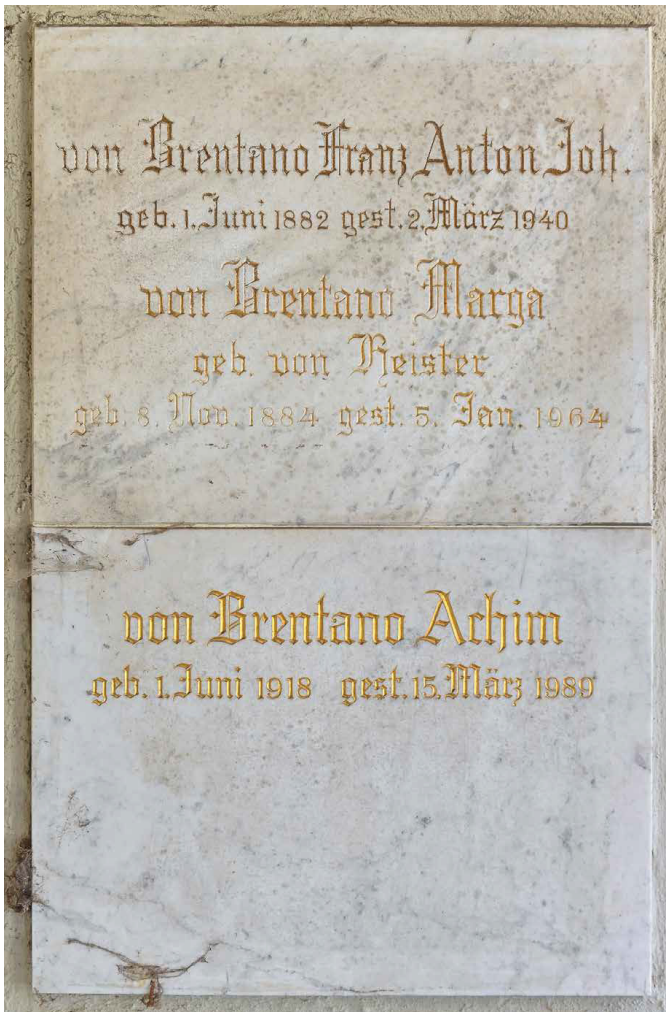 von Brentano Franz Anton Joh.
geb. 1. Juni 1882 gest. 2. März 1940
von Brentano Marga
geb. von Heister
geb. 8. Nov. 1884 gest. 5. Jan. 1964
von Brentano Achim
geb. 1. Juni 1918 gest. 15. März 1989